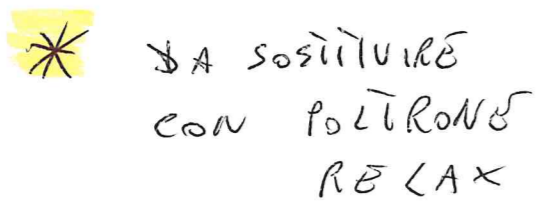 * DA SOSTITUIRE
CON POLTRONE
RELAX